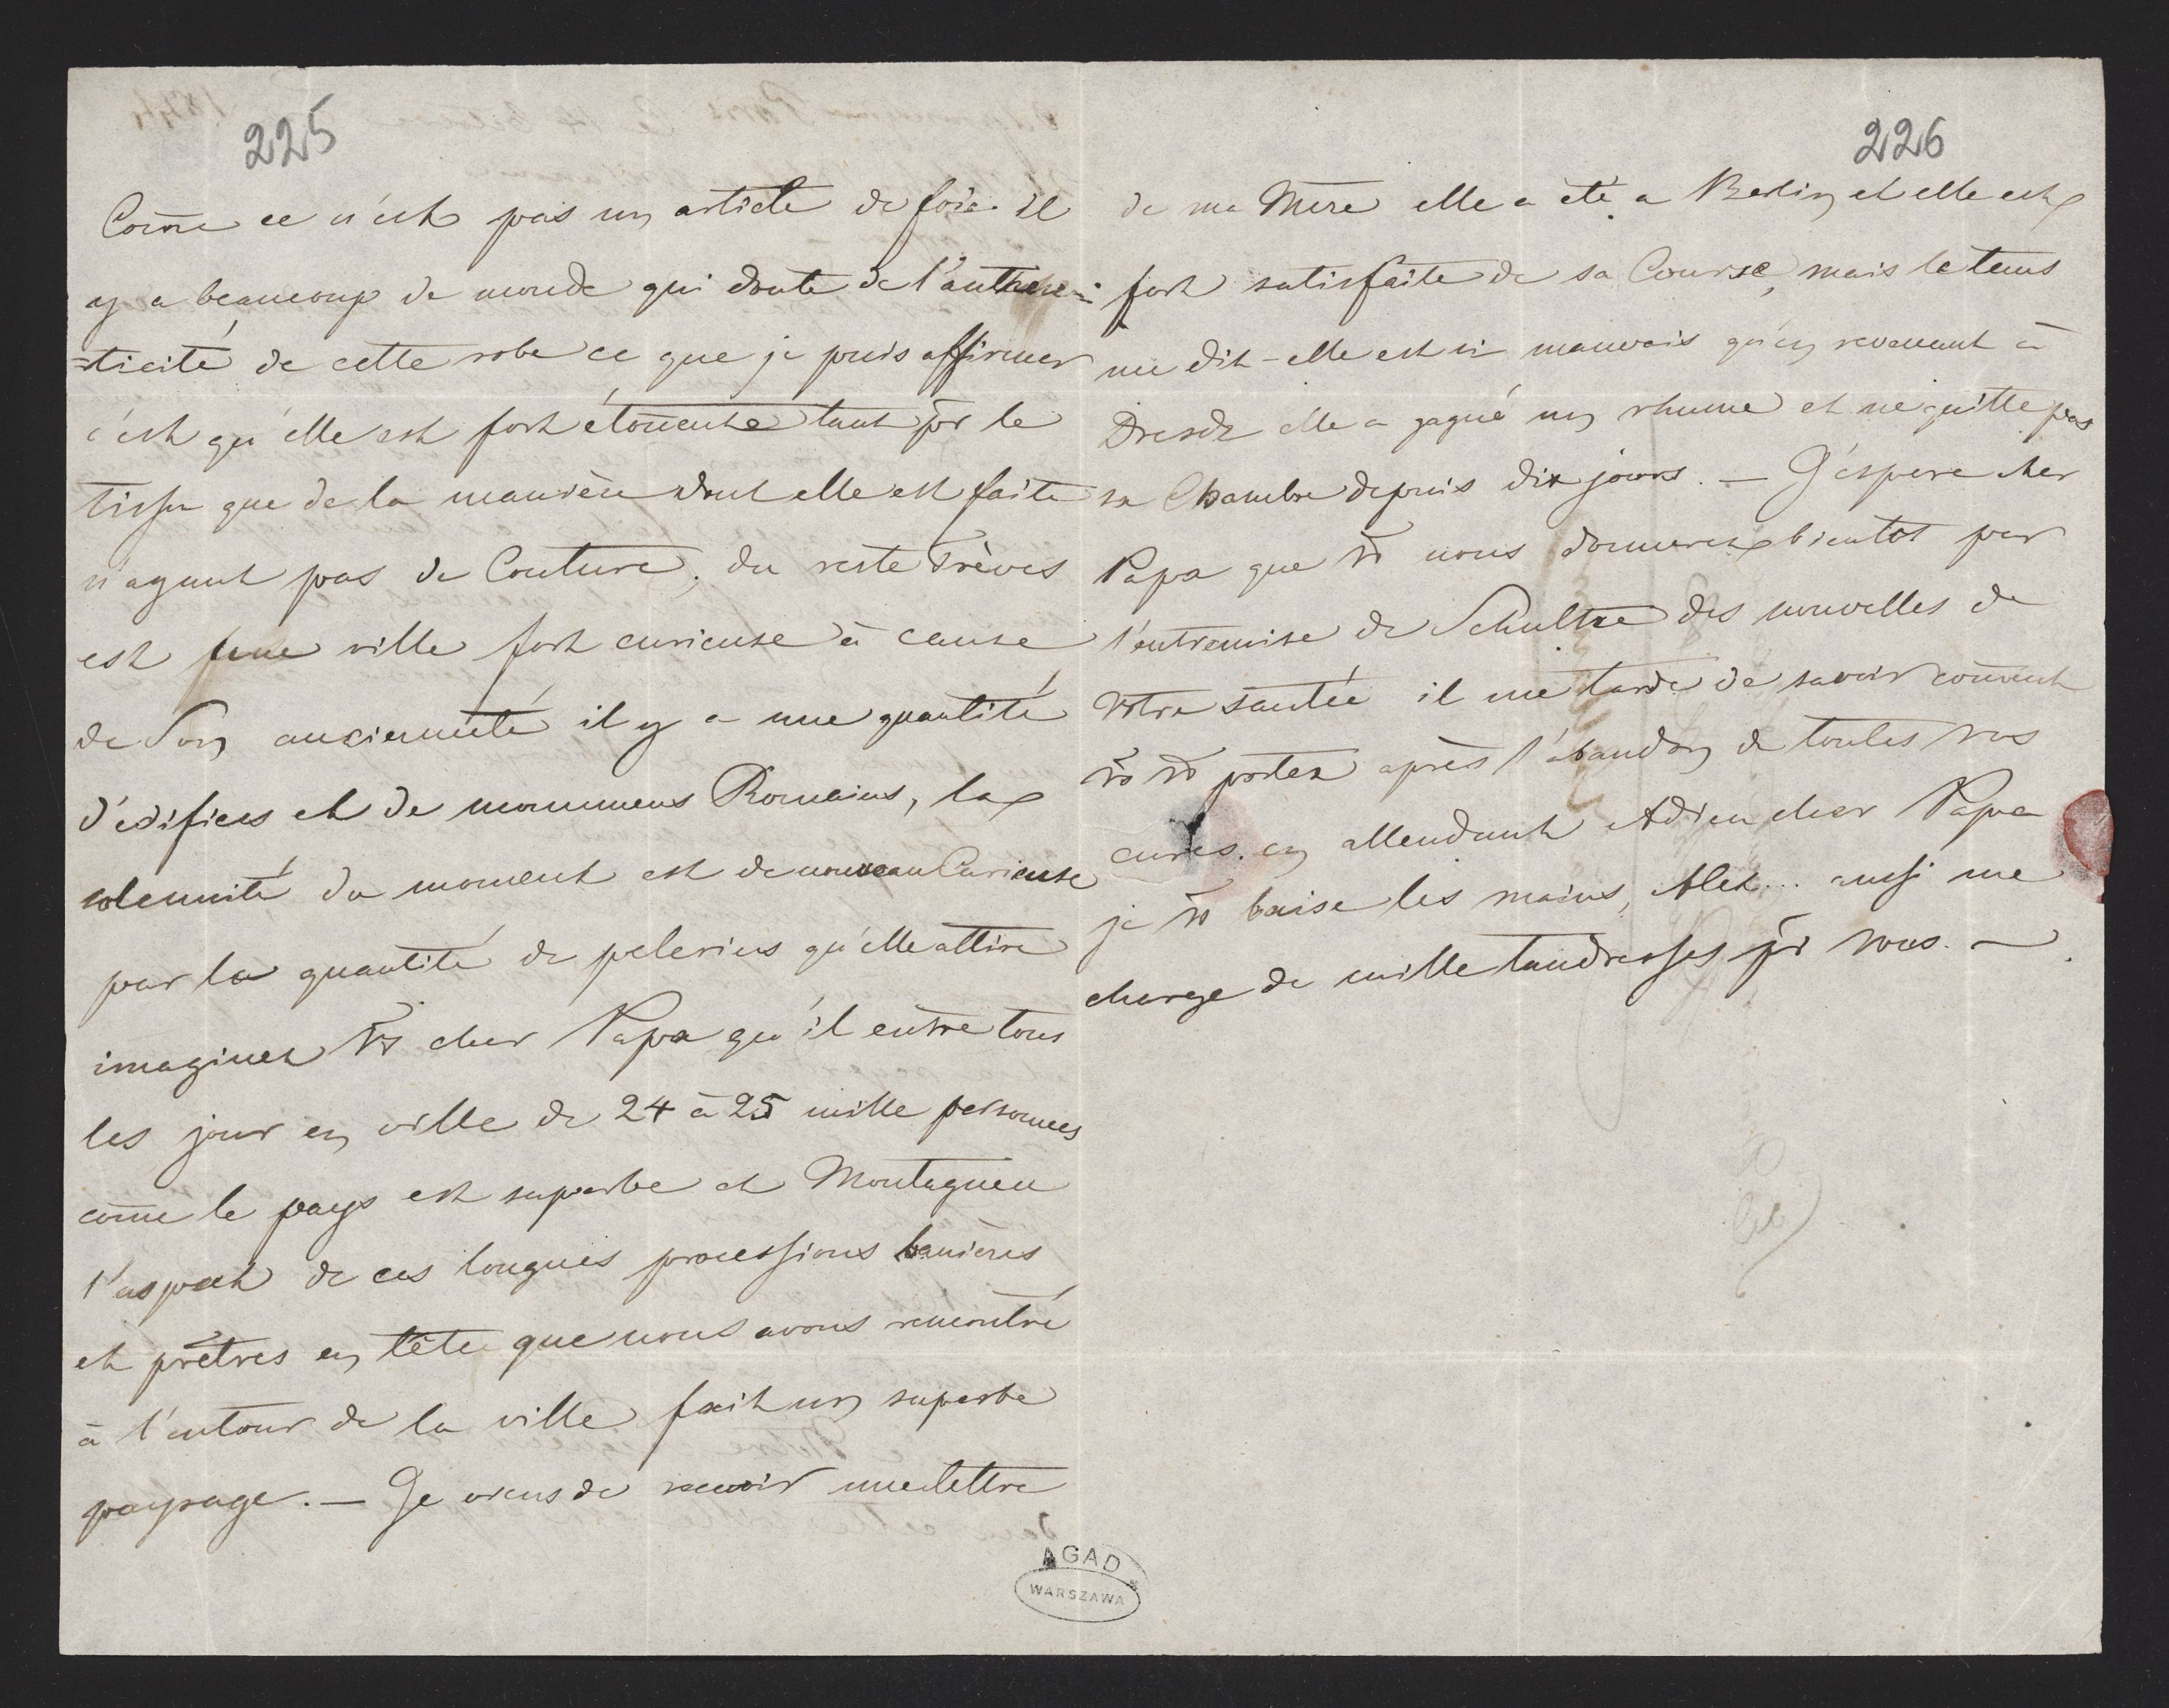 225
Com̄e ce n'est pas un article de foie. il
y a beaucoup de monde qui doute de l'authen=
=ticité de cette robe ce que je puis affirmer
c'est qu'elle est fort étoñente tant p̄r le
tissu que de la manière dont elle est faite
n'ayant pas de Couture, du reste Trèves
est une ville fort curieuse à cause
de son ancienneté il y a une quantité
d'édifices et de monumens Romains, la
solennité du moment est de nouveau Curieuse
par la quantité de pelerins qu'elle attire
imaginez v̄s cher Papa qu'il entre tous
les jour en ville de 24 à 25 mille personnes
com̄e le pays est superbe et Montagneu
l'aspect de ces longues processions banières
et prêtres en tête que nous avons rencontré
à l'entour de la ville fait un superbe
paysage. — Je viens de recevoir une lettre
AGAD
WARSZAWA
226
de ma Mère elle a été a Berlin et elle est
fort satisfaite de sa Course, mais le tems
me dit-elle est si mauvais qu'en revenant à
Dresde elle a gagné un rhume et ne quitte pas
sa Chambre depuis dix jours. — J'éspere cher
Papa que v̄s nous donnerez bientot par
l'entremise de Schultze des nouvelles de
votre santée il me tarde de savoir com̄ent
v̄s v̄s portez après l'abandon de toutes vos
cures. en attendant Adieu cher Papa
je v̄s baise les mains, Alex... aussi me
charge de mille tendresses p̄r vous. —